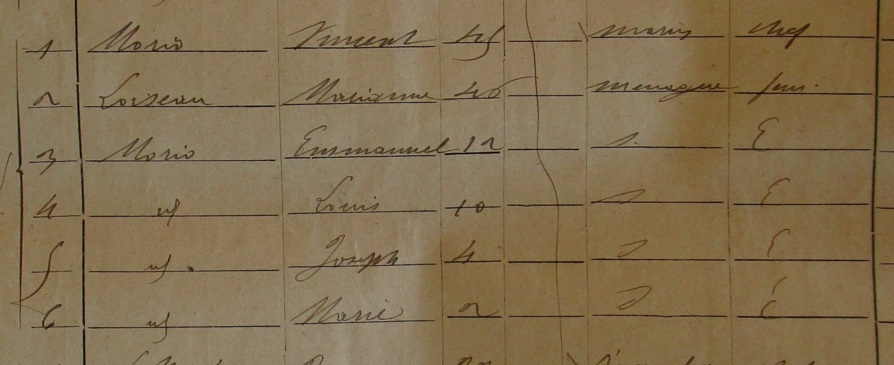 1 Morio Vincent 45 marin chef
2 Loiseau Marianne 46 menagère fem.
3 Morio Emmanuel 12 s. E
4 id Louis 10 s E
5 id. Joseph 4 s E
6 id Marie 2 s E